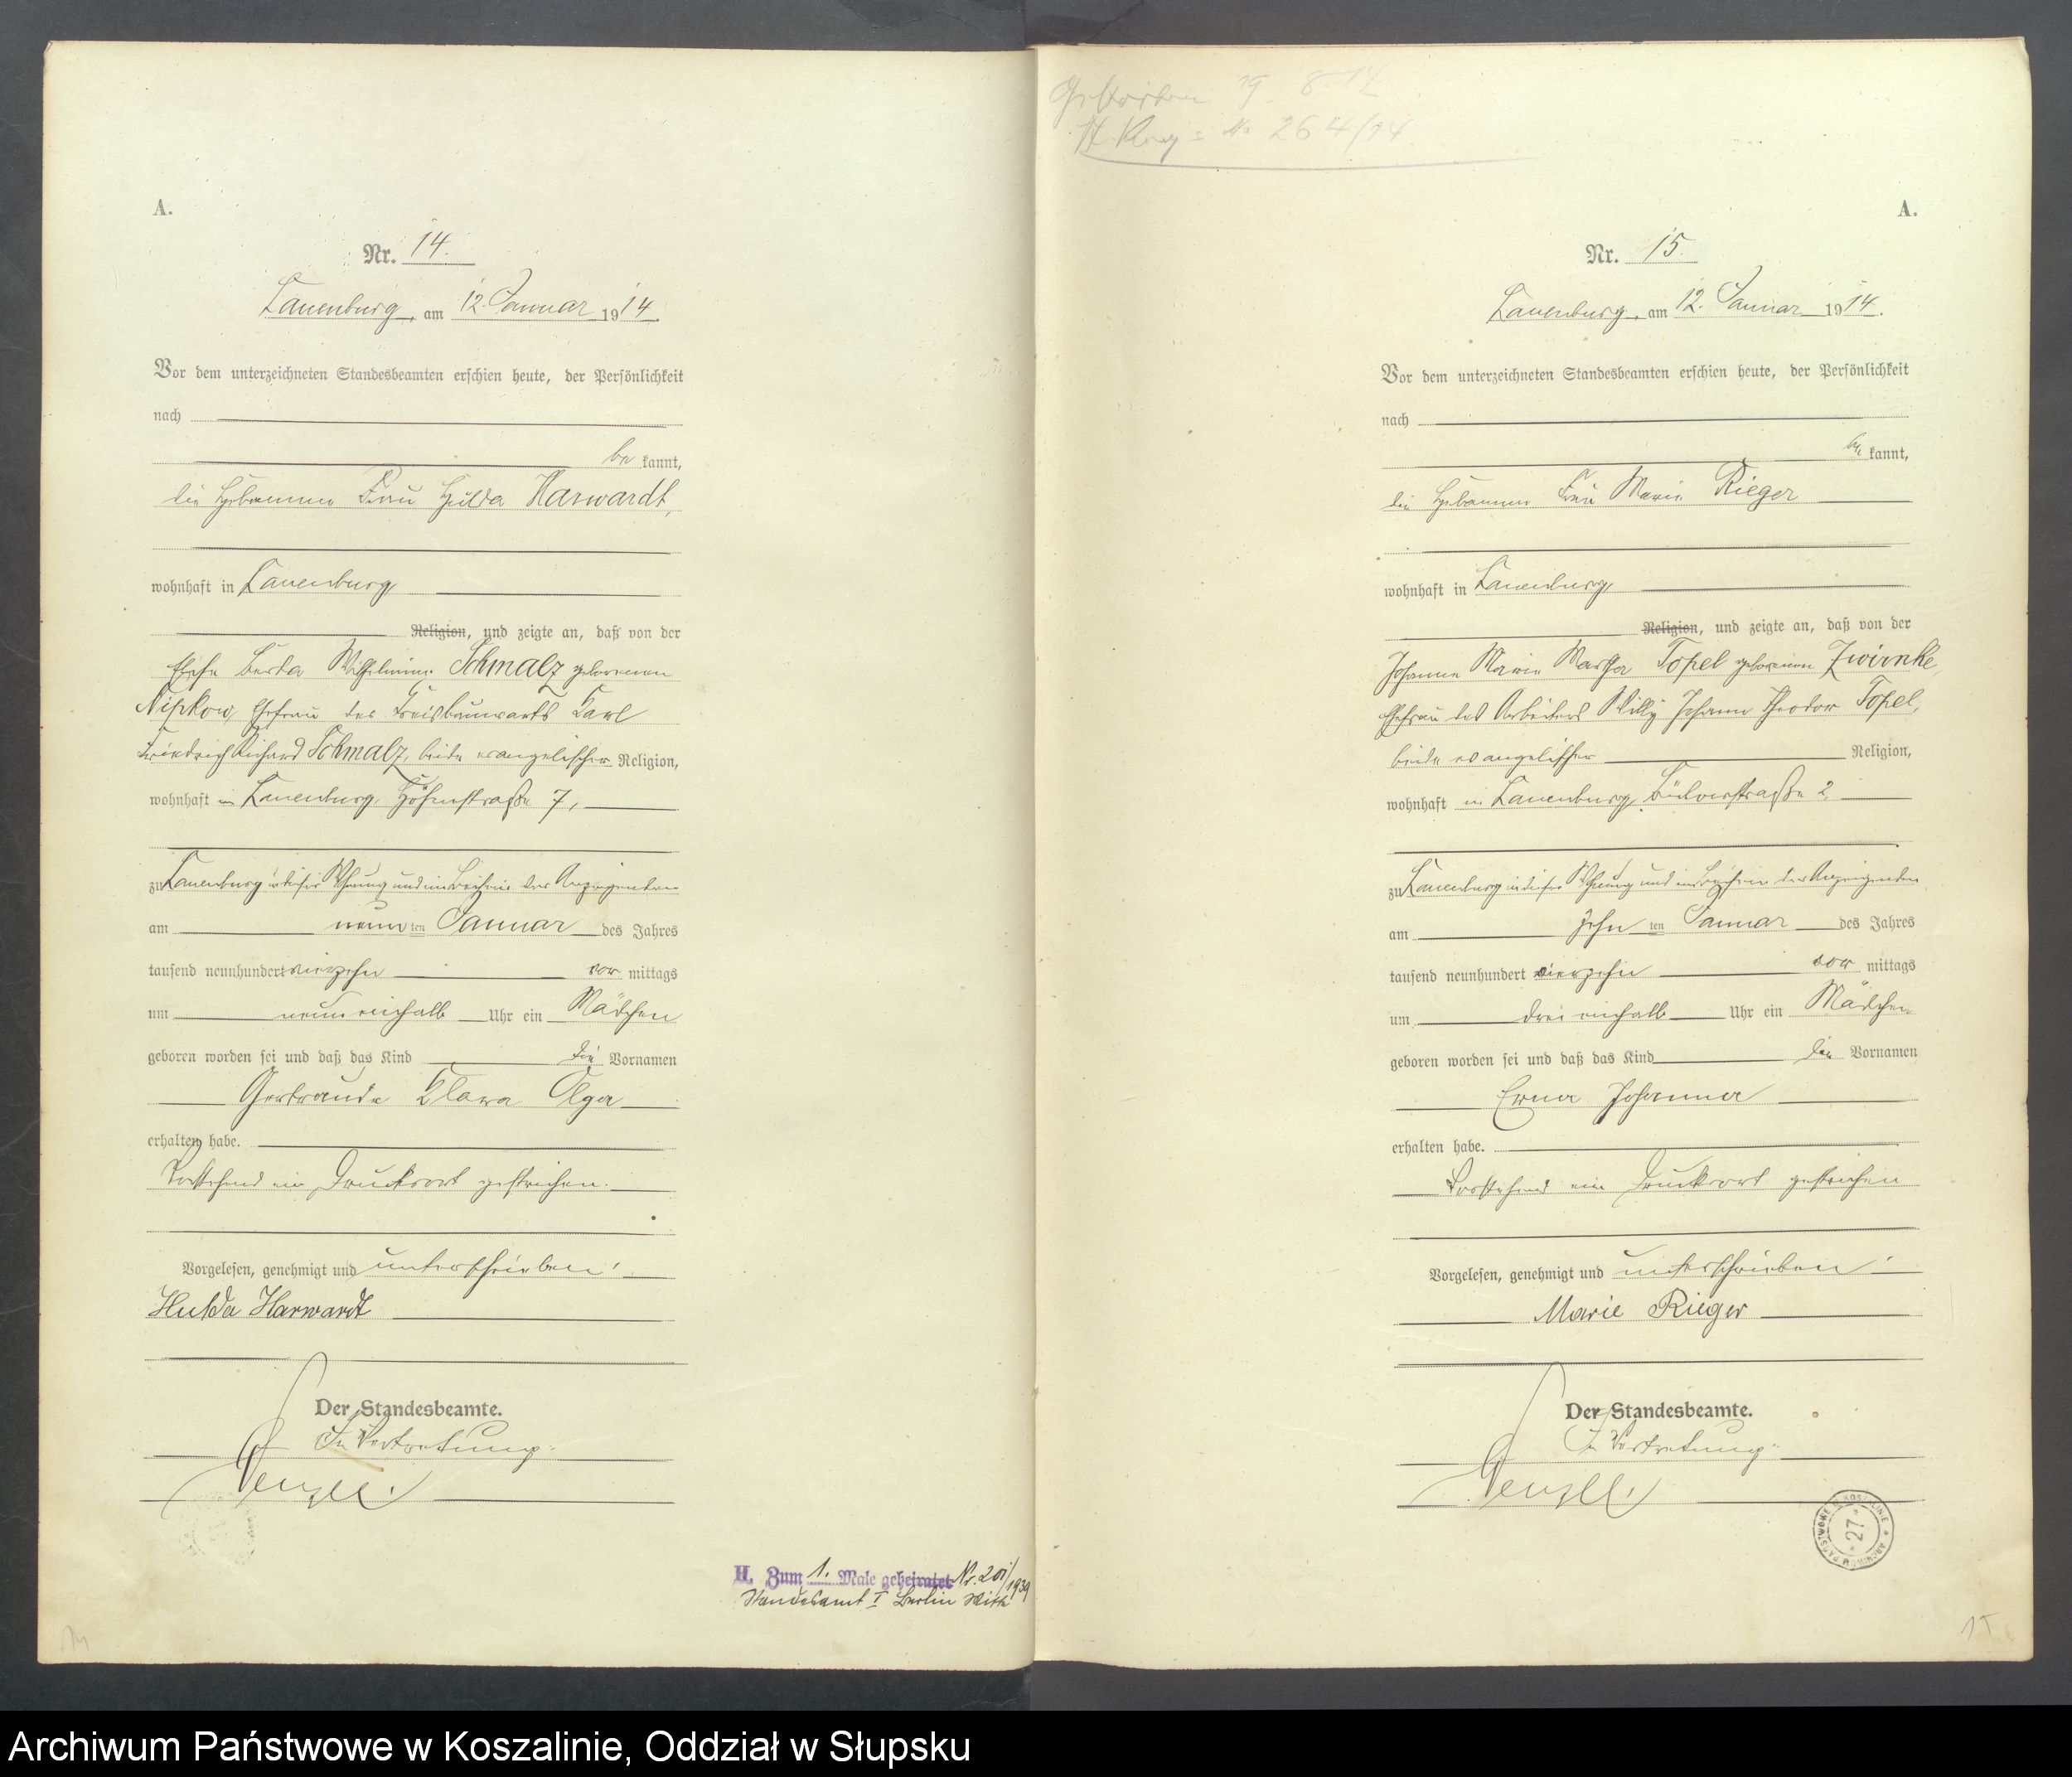 A.
Nr. 14.
Lauenburg, am 12. Januar 1914.
Vor dem unterzeichneten Standesbeamten erschien heute, der Persönlichkeit
nach
be kannt,
die Hebamme Frau Hulda Harwardt,
wohnhaft in Lauenburg
Religion, und zeigte an, daß von der
Berta Wilhelmine Schmalz geborenen
Nipkow, Ehefrau des Karl
Friedrich Richard Schmalz, beide evangelischer Religion,
wohnhaft in Lauenburg, Höhnstraße 7,
zu Lauenburg in dieser Wohnung und im Beisein der Anzeigenden
am neun ten Januar des Jahres
tausend neunhundert vierzehn vor mittags
um neuneinhalb Uhr ein Mädchen
geboren worden sei und daß das Kind die Vornamen
Gertraude Klara Olga
erhalten habe.
Vorstehend ein Druckwort gestrichen.
Vorgelesen, genehmigt und unterschrieben:
Hulda Harwardt
Der Standesbeamte.
In Vertretung:
H. Zum 1. Male geheiratet Nr. 201/1939
Standesamt I Berlin Mitte
14
Gestorben 19. 8. 14
St. Reg: Nr 264/14
A.
Nr. 15.
Lauenburg, am 12. Januar 1914.
Vor dem unterzeichneten Standesbeamten erschien heute, der Persönlichkeit
nach
be kannt,
die Hebamme Frau Marie Rieger
wohnhaft in Lauenburg
Religion, und zeigte an, daß von der
Johanna Marie Martha Topel geborenen Zwirnke,
Ehefrau des Arbeiters Willy Johann Theodor Topel,
beide evangelischer Religion,
wohnhaft in Lauenburg, Bülowstraße 2,
zu Lauenburg in dieser Wohnung und im Beisein der Anzeigenden
am zehn ten Januar des Jahres
tausend neunhundert vierzehn vor mittags
um dreieinhalb Uhr ein Mädchen
geboren worden sei und daß das Kind die Vornamen
Erna Johanna
erhalten habe.
Vorstehend ein Druckwort gestrichen
Vorgelesen, genehmigt und unterschrieben:
Marie Rieger
Der Standesbeamte.
In Vertretung:
ARCHIWUM PAŃSTWOWE W KOSZALINIE
27
15
Archiwum Państwowe w Koszalinie, Oddział w Słupsku